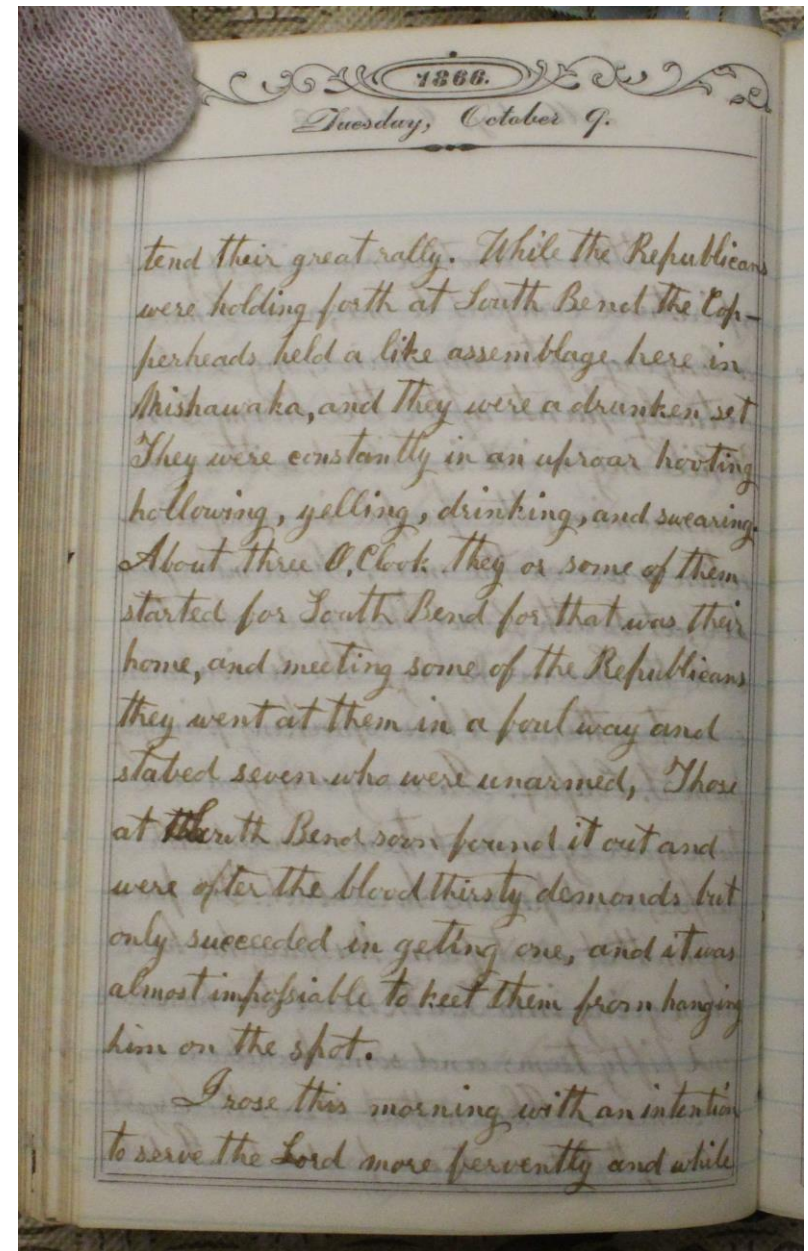 1866.
Tuesday, October 9.
tend their great rally. While the Republicans
were holding forth at South Bend the Cop-
perheads held a like assemblage here in
Mishawaka, and they were a drunken set
They were constantly in an uproar hooting
hollowing, yelling, drinking, and swearing.
About three O,Clook they or some of them
started for South Bend for that was their
home, and meeting some of the Republicans
they went at them in a foul way and
stabed seven who were unarmed, Those
at South Bend soon found it out and
were after the blood thirsty demonds but
only succeeded in geting one, and it was
almost impossiable to keet them from hanging
him on the spot.
I rose this morning with an intention
to serve the Lord more fervently and while